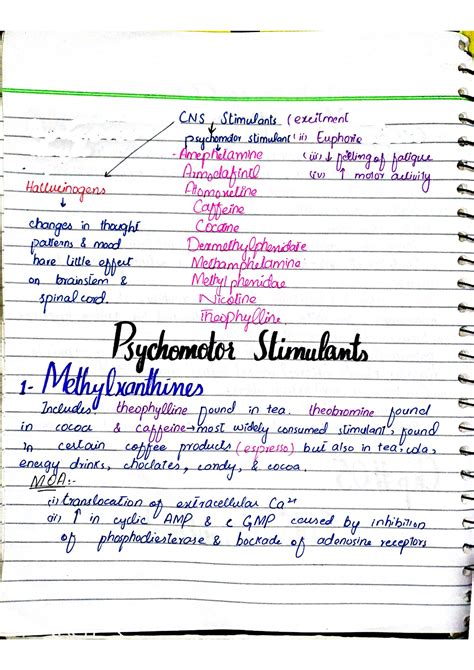 CNS Stimulants (excitment
psychomotor stimulant (ii) Euphoria
Amephetamine (iii) ↓ felling of fatigue
Armodafintl (iv) ↑ motor activity
Atomoxetine
Caffeine
Cocaine
Dermethylphenidate
Methamphetamine
Methylphenidae
Nicotine
Theophylline.
Hallucinogens
↓
changes in thought
patterns & mood
have little effect
on brainstem &
spinal cord.
Psychomotor Stimulants
1- Methylxanthines
Includes theophylline found in tea. theobromine found
in cocoa & caffeine→most widely consumed stimulant, found
in certain coffee products (espresso) but also in tea, cola,
energy drinks, choclates, candy, & cocoa.
MOA:-
(i) translocation of extracellular Ca²⁺
(ii) ↑ in cyclic AMP & c GMP caused by inhibition
of phosphodiesterase & bockade of adenosine receptors